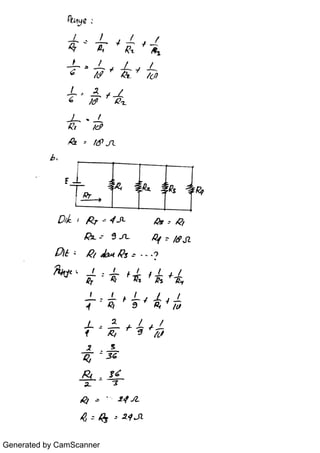 Penye :
1/RT = 1/R1 + 1/R2 + 1/R3
1/6 = 1/18 + 1/R2 + 1/18
1/6 = 2/18 + 1/R2
1/R2 = 1/18
R2 = 18 Ω
b.
E RT R1 R2 R3 R4
Dik : RT = 4 Ω R3 = R1
R2 = 9 Ω R4 = 18 Ω
Dit : R1 dan R3 = ...?
Penye : 1/RT = 1/R1 + 1/R2 + 1/R3 + 1/R4
1/4 = 1/R1 + 1/9 + 1/R1 + 1/18
1/4 = 2/R1 + 1/9 + 1/18
2/R1 = 3/36
R1/2 = 36/3
R1 = 24 Ω
R1 = R3 = 24 Ω
Generated by CamScanner